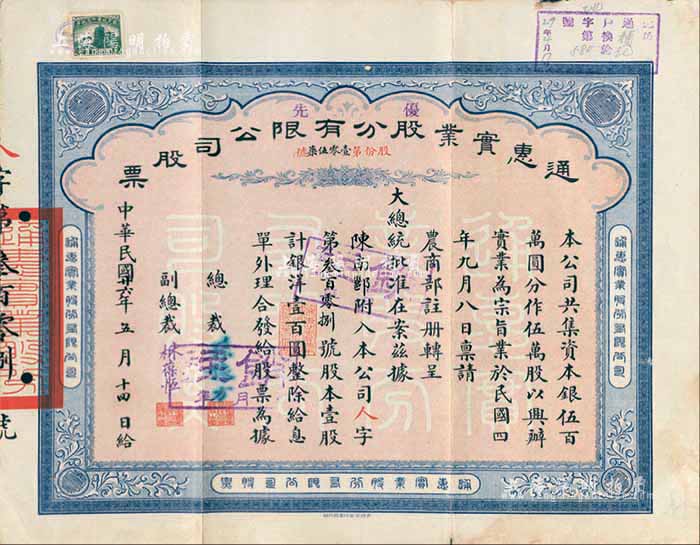 優先
通惠實業股分有限公司股票
股份第壹零伍柒號
本公司共集資本銀伍百
萬圓分作伍萬股以興辦
實業為宗旨業於民國四
年九月八日稟請
農商部註冊轉呈
大總統批准在案茲據
陳南郵附入本公司人字
第叁百零捌號股本壹股
計銀洋壹百圓整除給息
單外理合發給股票為據
總裁
副總裁
中華民國六年五月十四日給
人字第叁百零捌號
通惠實業股份有限公司股票